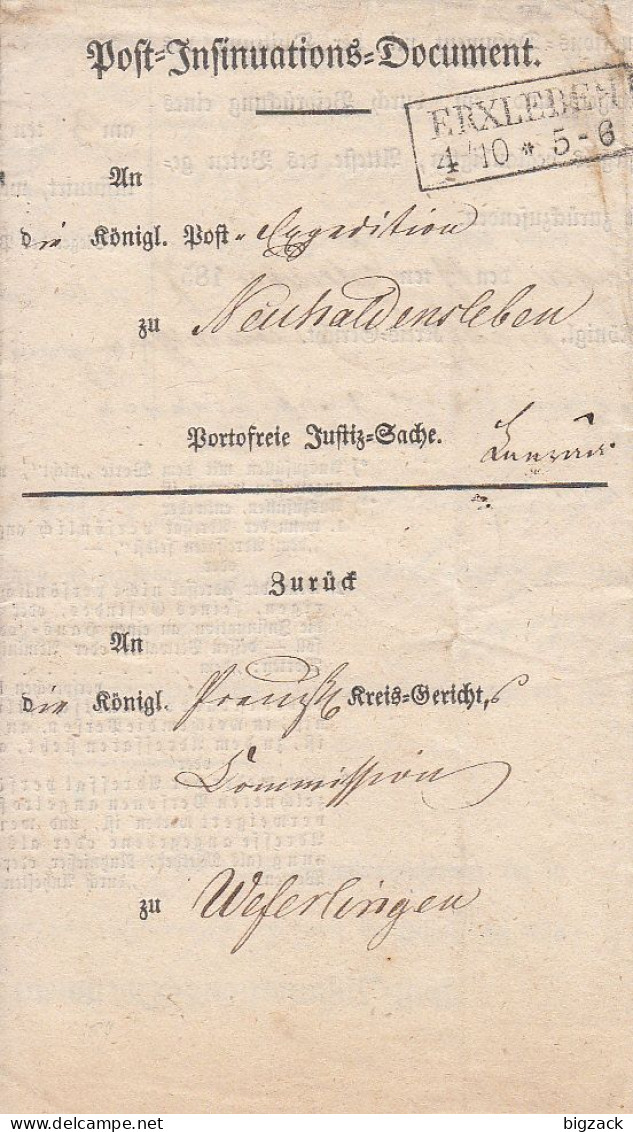 Post-Insinuations-Document.
ERXLEBEN
4/10 * 5-6
An
die Königl. Post-Expedition
zu Neuhaldensleben
Portofreie Justiz-Sache.
Zurück
An
die Königl. Preuß. Kreis-Gerichts
Commission
zu Weferlingen
delcampe.net
bigzack